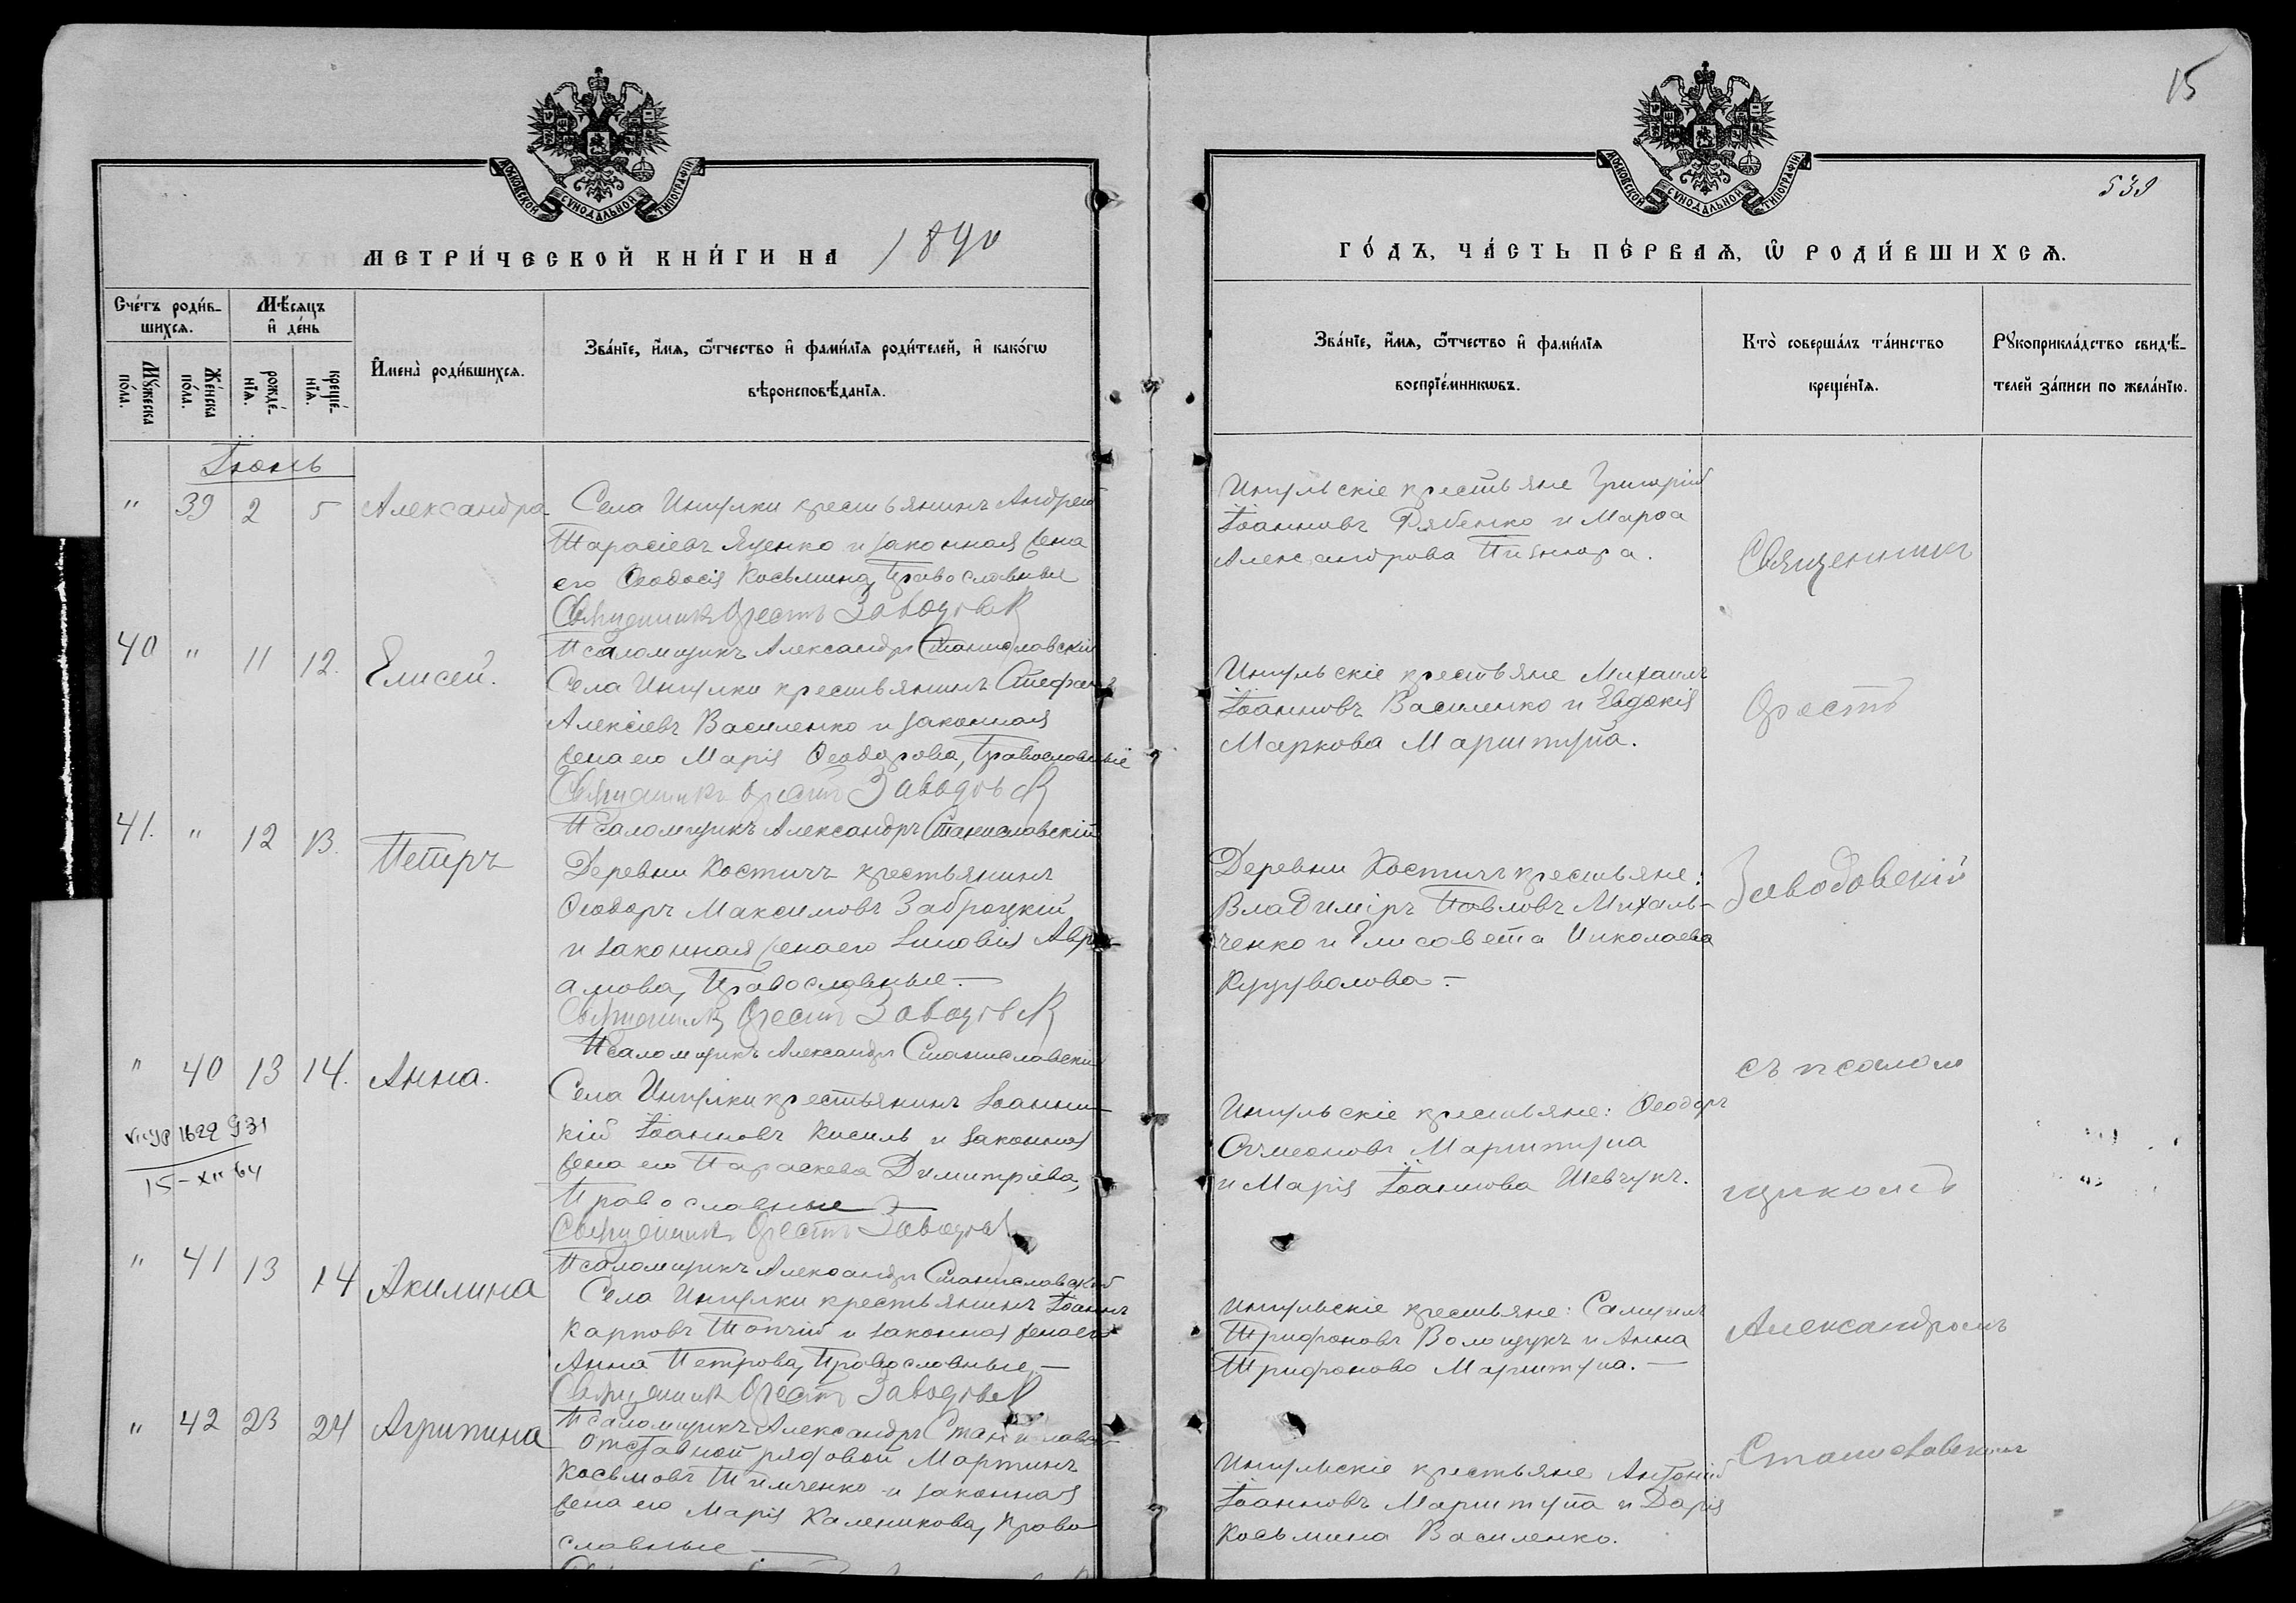 15
539
МОСКОВСКОЙ СѴНОДАЛЬНОЙ ТИПОГРАФІИ
МОСКОВСКОЙ СѴНОДАЛЬНОЙ ТИПОГРАФІИ
МЕТРИ́ЧЕСКОЙ КНИ́ГИ НА 1890
ГО́ДЪ, ЧА́СТЬ ПЕ́РВАѦ, Ѡ҆ РОДИ́ВШИХСѦ.
Сче́тъ роди́в-
шихсѧ.
Мꙋ́жеска
по́ла.
Же́нска
по́ла.
Мѣ́сѧцъ
и҆ де́нь
рожде́-
нїѧ.
креще́-
нїѧ.
И҆мена̀ роди́вшихсѧ.
Зва́нїе, и҆́мѧ, ѻ҆́тчество и҆ фами́лїѧ роди́телей, и҆ како́гѡ
вѣроисповѣ́данїѧ.
Зва́нїе, и҆́мѧ, ѻ҆́тчество и҆ фами́лїѧ
воспрїе́мникѡвъ.
Кто̀ соверша́лъ та́инство
креще́нїѧ.
Рꙋкоприкла́дство свидѣ́-
телей за́писи по жела́нїю.
Іюнь
" 39 2 5 Александра
Села Ингулки крестьянинъ Андрей
Тарасіевъ Яценко и законная жена
его Ѳеодосія Косьмина, Православные
Священникъ Орестъ Заводовск
Псаломщикъ Александръ Станиславскій
Ингульскіе крестьяне Григорій
Іоанновъ Рябенко и Марѳа
Александрова
40 " 11 12. Елисей.
Села Ингулки крестьянинъ Стефанъ
Алексіевъ Василенко и законная
жена его Марія Ѳеодорова, Православные
Священникъ Орестъ Заводовск
Псаломщикъ Александръ Станиславскій
Ингульскіе крестьяне Михаилъ
Іоанновъ Василенко и Евдокія
Маркова Марштупа.
41. " 12 13. Петръ
Деревни Костичъ крестьянинъ
Ѳеодоръ Максимовъ Заброцкій
и законная жена его Зиновія Авра-
амова, Православные. —
Священникъ Орестъ Заводовск
Псаломщикъ Александръ Станиславскій
Деревни Костичъ крестьяне:
Владиміръ Павловъ Михаль-
ченко и Елисавета Николаева
" 40 13 14. Анна.
Села Ингулки крестьянинъ Іоанни-
кій Іоанновъ Кисиль и законная
жена его Параскева Димитріева,
Православные —
Священникъ Орестъ Заводовск
Псаломщикъ Александръ Станиславскій
1622 931
15-XII 64
Ингульскіе крестьяне: Ѳеодоръ
Сѵмеоновъ Марштупа
и Марія Іоаннова Шевчукъ.
" 41 13 14 Акилина
Села Ингулки крестьянинъ Іоаннъ
Карповъ Топчій и законная жена его
Анна Петрова, Православные —
Священникъ Орестъ Заводовск
Псаломщикъ Александръ Станиславскій
Ингульскіе крестьяне: Самуилъ
Трифоновъ Волощукъ и Анна
Трифонова Марштупа. —
" 42 23 24 Агрипина
Отставной рядовой Мартинъ
Косьмовъ Тимченко и законная
жена его Марія Каленикова, Право-
славные —
Ингульскіе крестьяне Антоній
Іоанновъ Марштупа и Дарія
Косьмина Василенко.
Священникъ
Орестъ
Заводовскій
съ псалом
щикомъ
Александромъ
Станиславскимъ